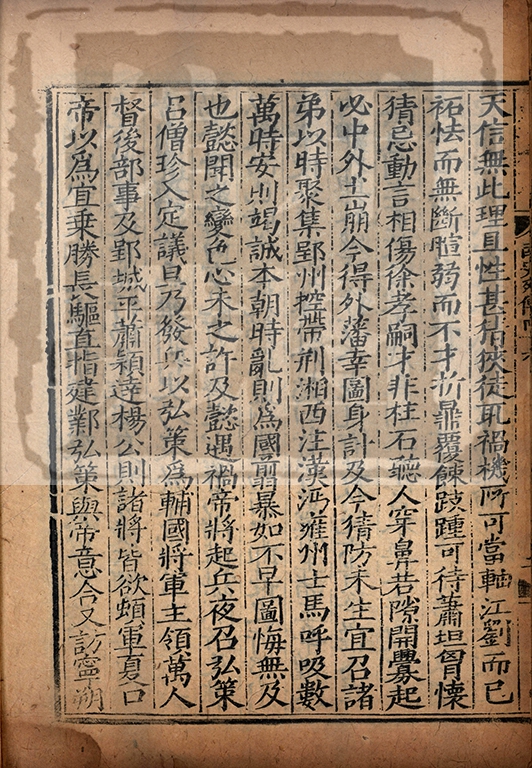 天信無此理且性甚猜狹徒耴禍機所可當軸江劉而已
祏怯而無斷暄弱而不才折鼎覆餗跂踵可待蕭坦胷懷
猜忌動言相傷徐孝嗣才非柱石聽人穿鼻若隙開釁起
必中外土崩今得外藩幸圖身計及今猜防未生宜召諸
弟以時聚集郢州控帶荆湘西注漢沔雍州士馬呼吸數
萬時安則竭誠本朝時亂則為國翦暴如不早圖悔無及
也懿聞之變色心未之許及懿遇禍帝將起兵夜召弘策
吕僧珍入定議旦乃發兵以弘策為輔國將軍主領萬人
督後部事及郢城平蕭穎達楊公則諸將皆欲頓軍夏口
帝以為宜乗勝長驅直指建鄴弘策與帝意合又訪寧朔